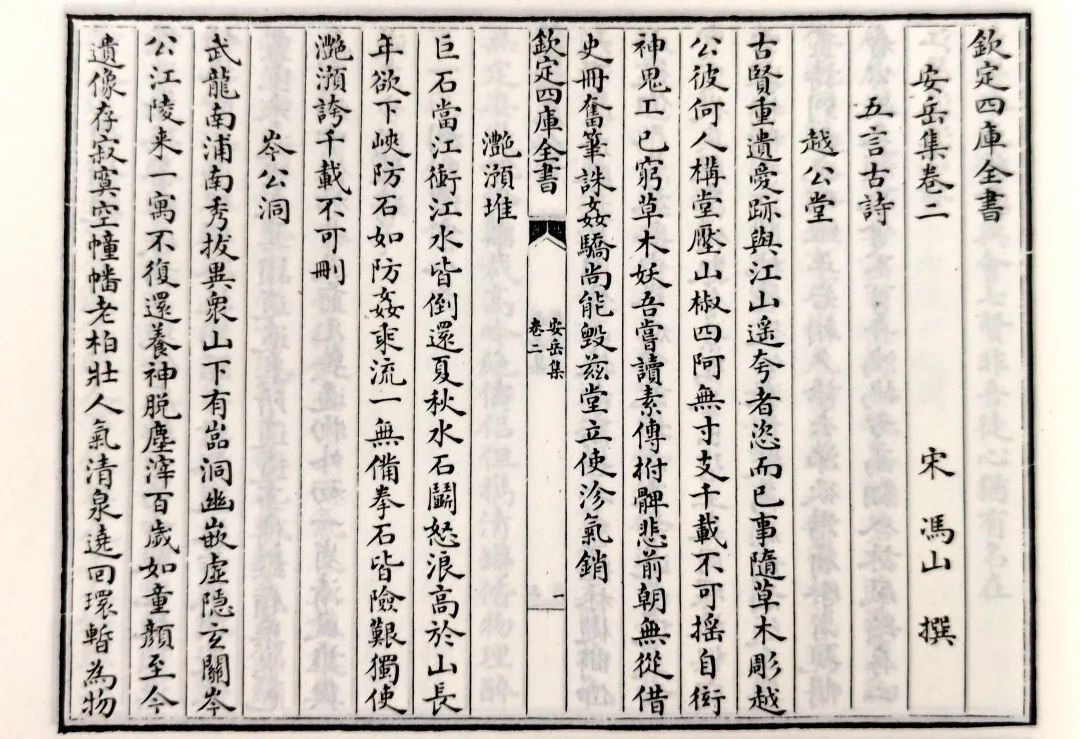 欽定四庫全書
安岳集卷二
宋 馮山 撰
五言古詩
越公堂
古賢重遺愛跡與江山遥夸者恣而已事隨草木彫越
公彼何人構堂壓山椒四阿無寸支千載不可揺自衒
神鬼工已窮草木妖吾嘗讀素傳拊髀悲前朝無從借
史冊奮筆誅姦驕尚能毁兹堂立使沴氣銷
欽定四庫全書
安岳集
卷二
一
灔澦堆
巨石當江衝江水皆倒還夏秋水石鬭怒浪高於山長
年欲下峽防石如防姦乘流一無備拳石皆險艱獨使
灔澦誇千載不可刪
岑公洞
武龍南浦南秀拔異衆山下有嵓洞幽嵌虚隠玄關岑
公江陵来一寓不復還養神脱塵滓百歲如童顔至今
遺像存寂寞空幢幡老柏壯人氣清泉遶回環暫為物